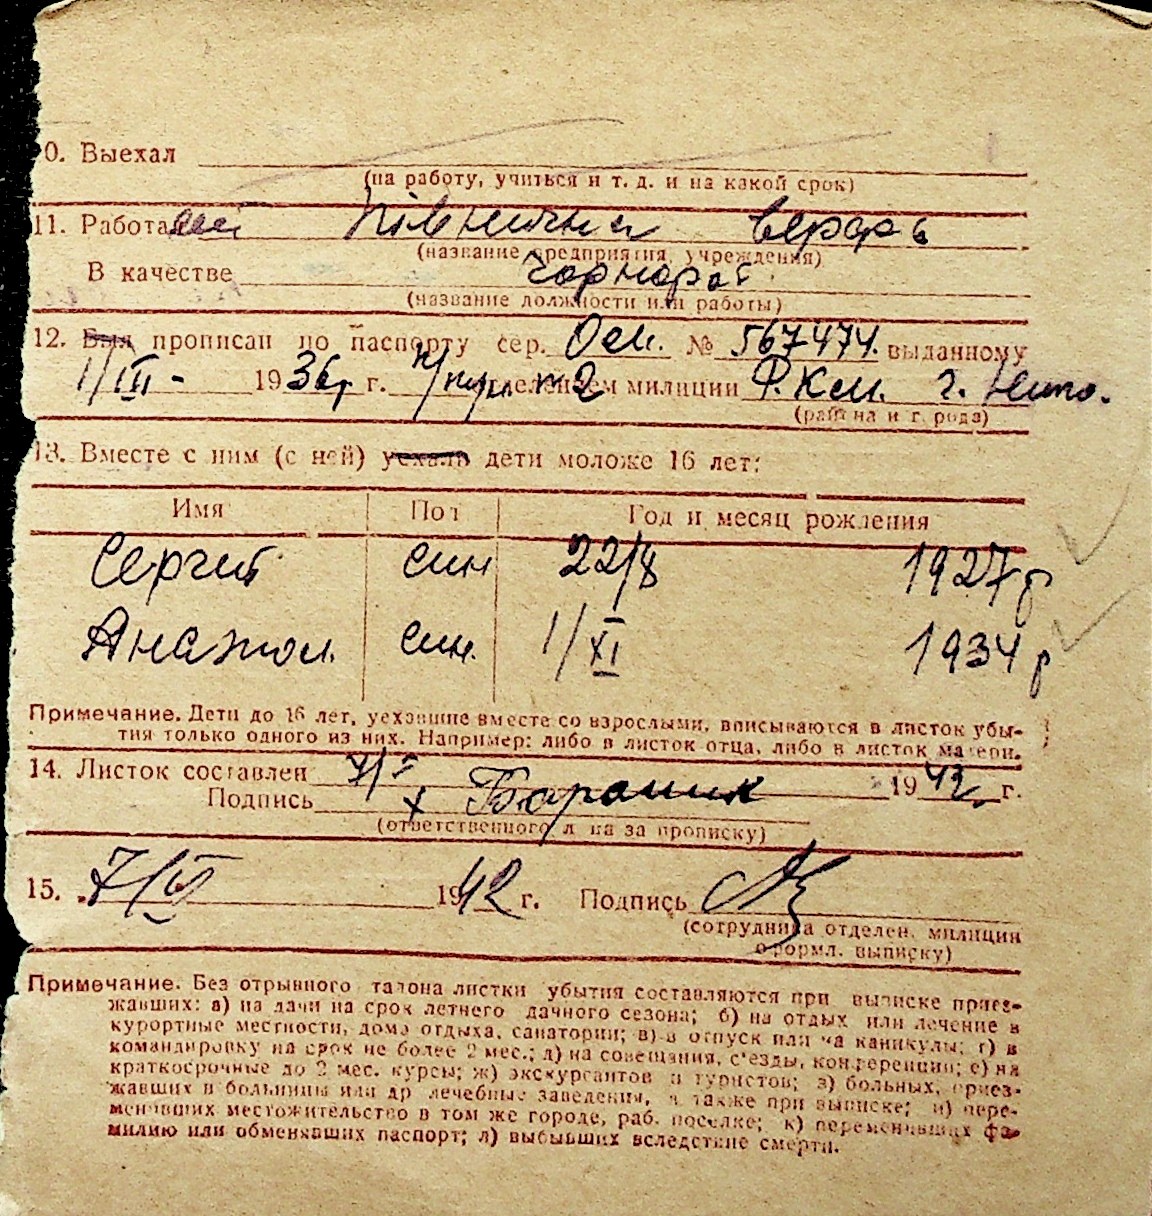 0. Выехал
(на работу, учиться и т. д. и на какой срок)
11. Работа Північна верфь
(название предприятия, учреждения)
В качестве чорнороб.
(название должности или работы)
12. Был прописан по паспорту сер. № 567474. выданному
1/III - 1936 г. № 2 милиции г.
(района и города)
13. Вместе с ним (с ней) уехали дети моложе 16 лет:
Имя Пол Год и месяц рождения
Сергей син 22/8 1927 р
Анатол. син. 1/XI 1934 р
Примечание. Дети до 16 лет, уехавшие вместе со взрослыми, вписываются в листок убы-
тия только одного из них. Например: либо в листок отца, либо в листок матери.
14. Листок составлен 7/ 1942 г.
Подпись х
(ответственного лица за прописку)
15. 7/ 1942 г. Подпись
(сотрудника отделен. милиции
оформл. выписку)
Примечание. Без отрывного талона листки убытия составляются при выписке приез-
жавших: а) на дачи на срок летнего дачного сезона; б) на отдых или лечение в
курортные местности, дома отдыха, санатории; в) в отпуск или на каникулы; г) в
командировку на срок не более 2 мес.; д) на совещания, с'езды, конференции; е) на
краткосрочные до 2 мес. курсы; ж) экскурсантов и туристов; з) больных, приез-
жавших в больницы или др лечебные заведения, а также при выписке; и) пере-
менивших местожительство в том же городе, раб. поселке; к) переменивших фа-
милию или обменявших паспорт; л) выбывших вследствие смерти.